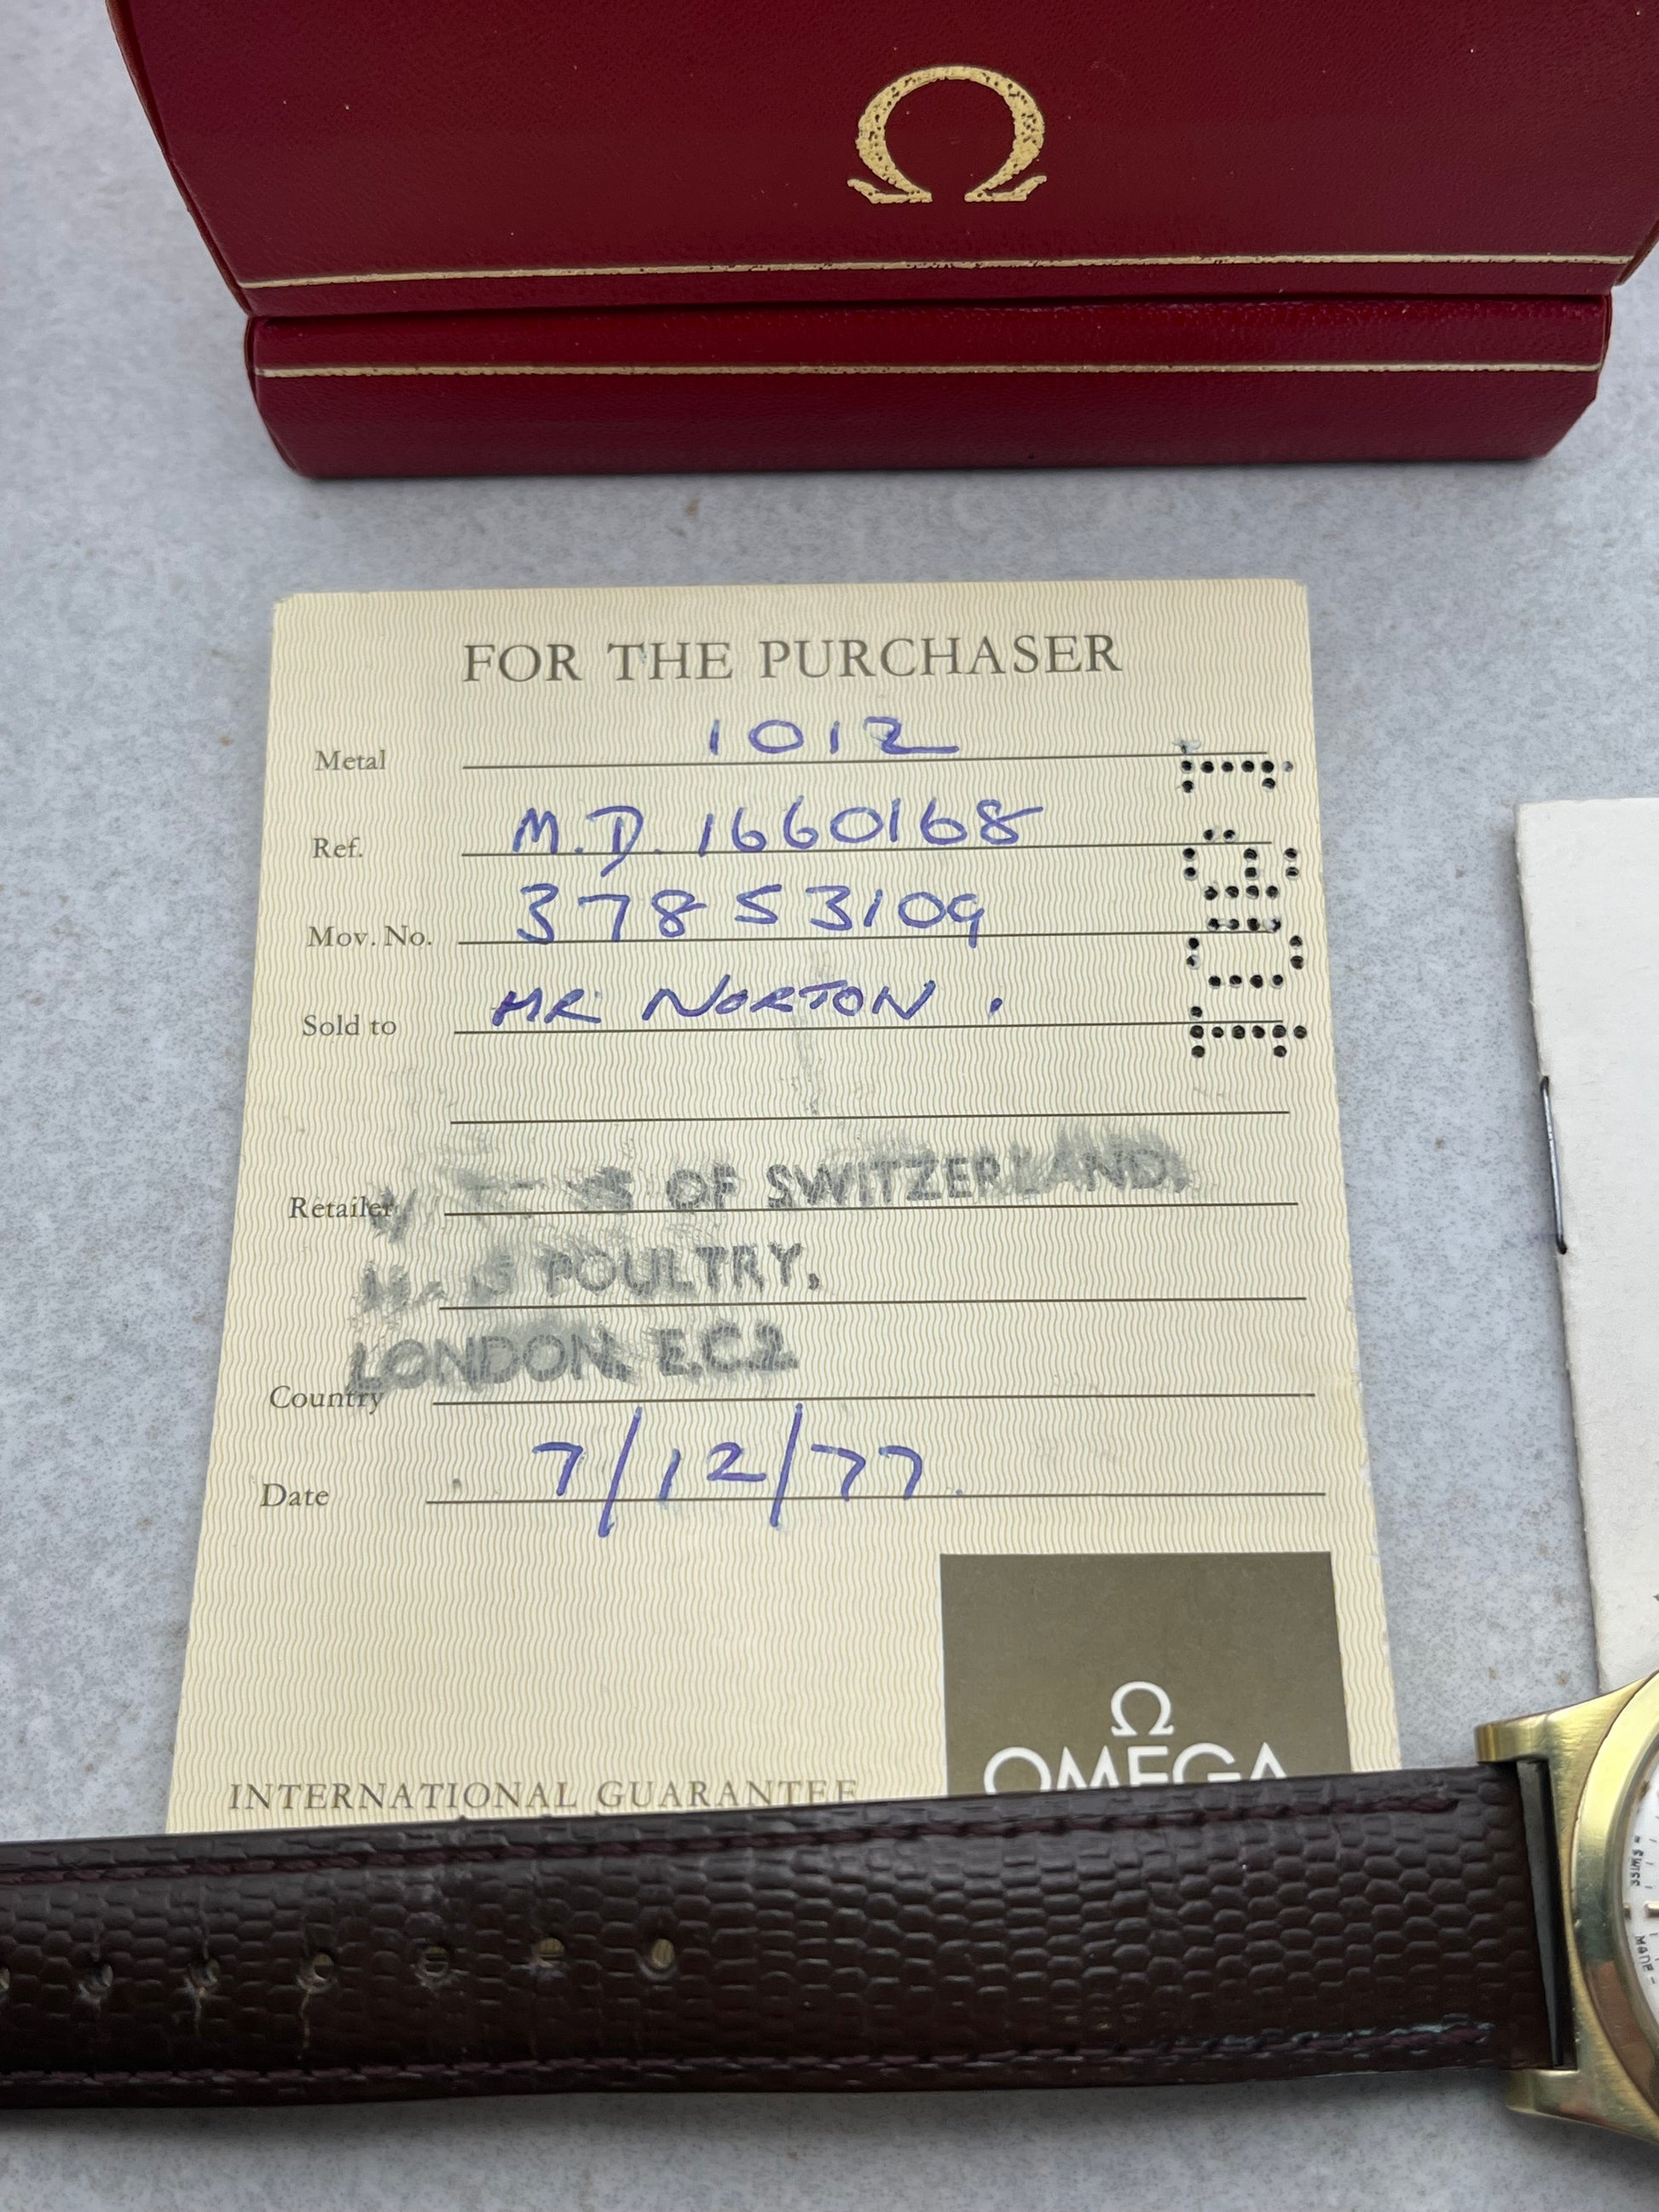 Ω
FOR THE PURCHASER
Metal 1012
Ref. M.D. 1660168
Mov. No. 37853109
Sold to MR NORTON.
Retailer OF SWITZERLAND,
POULTRY,
LONDON. EC2
Country
Date 7/12/77.
INTERNATIONAL GUARANTEE
Ω
OMEGA
SWISS
MADE